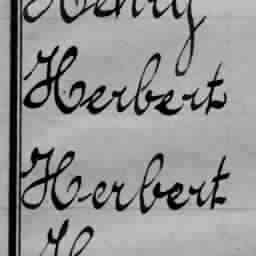 Henry
Herbert
Herbert
H